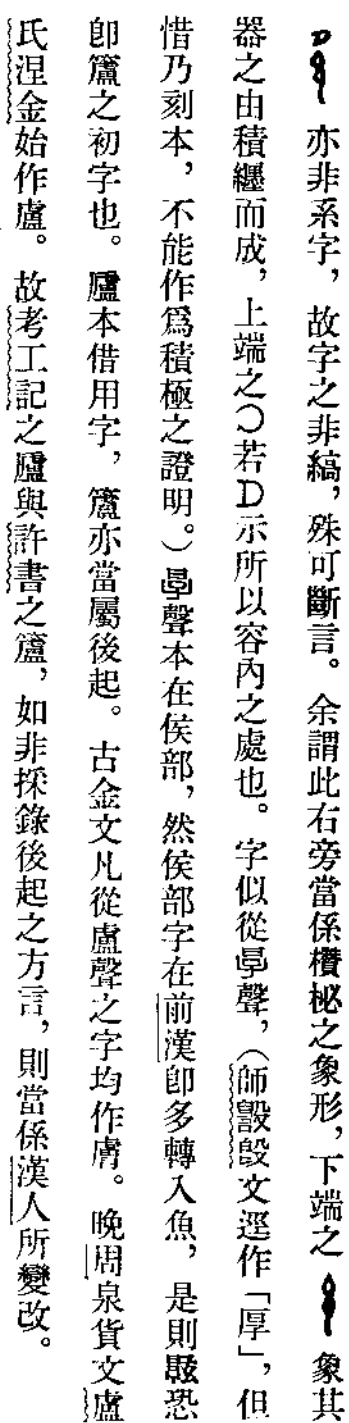 亦非系字，故字之非縞，殊可斷言。余謂此右旁當係欑柲之象形，下端之象其
器之由積纏而成，上端之⊃若D示所以容內之處也。字似從㫗聲，（師𣪘文逕作「厚」，但
惜乃刻本，不能作爲積極之證明。）㫗聲本在侯部，然侯部字在前漢卽多轉入魚，是則恐
卽籚之初字也。廬本借用字，籚亦當屬後起。古金文凡從盧聲之字均作膚。晚周泉貨文盧
氏涅金始作盧。故考工記之廬與許書之籚，如非採錄後起之方言，則當係漢人所變改。